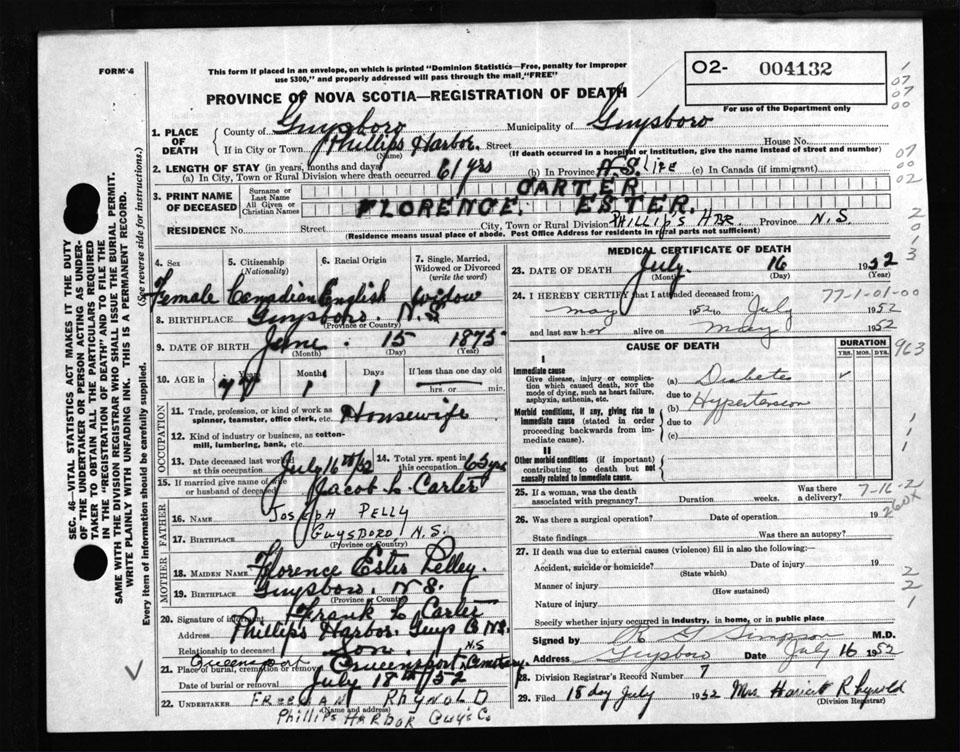 FORM 4
This form if placed in an envelope, on which is printed "Dominion Statistics—Free, penalty for improper
use $300," and properly addressed will pass through the mail, "FREE"
PROVINCE OF NOVA SCOTIA—REGISTRATION OF DEATH
O2- 004132
For use of the Department only
1
07
07
00
07
00
02
2
0
1
3
1. PLACE OF DEATH
County of Guysboro Municipality of Guysboro
If in City or Town Phillips Harbor. Street House No.
(Name) (If death occurred in a hospital or institution, give the name instead of street and number)
2. LENGTH OF STAY (in years, months and days)
(a) In City, Town or Rural Division where death occurred 61 yrs (b) In Province N.S. life (c) In Canada (if immigrant)
3. PRINT NAME OF DECEASED
Surname or Last Name CARTER
All Given or Christian Names FLORENCE. ESTER.
RESIDENCE No. Street City, Town or Rural Division PHILLIP'S HBR. Province N.S.
(Residence means usual place of abode. Post Office Address for residents in rural parts not sufficient)
4. Sex Female
5. Citizenship (Nationality) Canadian
6. Racial Origin English
7. Single, Married, Widowed or Divorced (write the word) widow
8. BIRTHPLACE Guysboro. N.S.
(Province or Country)
9. DATE OF BIRTH June. 15 1875
(Month) (Day) (Year)
10. AGE in 77 Months 1 Days 1 If less than one day old
hrs. or min.
OCCUPATION
11. Trade, profession, or kind of work as spinner, teamster, office clerk, etc. Housewife
12. Kind of industry or business, as cotton-mill, lumbering, bank, etc.
13. Date deceased last worked at this occupation July 16th/52
14. Total yrs. spent in this occupation 65 yrs
15. If married give name of wife or husband of deceased Jacob L Carter
FATHER
16. NAME JOSEPH PELLY
17. BIRTHPLACE GUYSBORO, N.S.
(Province or Country)
MOTHER
18. MAIDEN NAME Florence Ester Pelley.
19. BIRTHPLACE Guysboro. N.S.
(Province or Country)
20. Signature of informant Frank L Carter
Address Phillips Harbor. Guys Co N.S.
Relationship to deceased Son
21. Place of burial, cremation or removal Queensport Queensport, Cemetary. N.S
Date of burial or removal July 18th/52
22. UNDERTAKER FREEMAN RHYNOLD
(Name and address)
Phillips HARBOR Guys Co.
MEDICAL CERTIFICATE OF DEATH
23. DATE OF DEATH July. 16 1952
(Month) (Day) (Year)
24. I HEREBY CERTIFY that I attended deceased from: 77-1-01-00
may 1952 to July 1952
and last saw her alive on May 1952
CAUSE OF DEATH
DURATION
YRS. MOS. DYS.
963
I
Immediate cause
Give disease, injury or complication which caused death, NOT the mode of dying, such as heart failure, asphyxia, asthenia, etc.
(a) Diabetes ✓
due to
Morbid conditions, if any, giving rise to immediate cause (stated in order proceeding backwards from immediate cause).
(b) Hypertension
due to
(c)
1
1
II
Other morbid conditions (if important) contributing to death but not causally related to immediate cause.
25. If a woman, was the death associated with pregnancy? Duration weeks. Was there a delivery? 7-16-2
260X
26. Was there a surgical operation? Date of operation 19
State findings Was there an autopsy?
27. If death was due to external causes (violence) fill in also the following:
Accident, suicide or homicide? Date of injury 19
(State which)
Manner of injury
(How sustained)
Nature of injury
2
2
1
Specify whether injury occurred in industry, in home, or in public place
Signed by R G Simpson M.D.
Address Guysboro Date July 16 1952
28. Division Registrar's Record Number 7
29. Filed 18 day July 1952 Mrs Hariett Rhynold
(Division Registrar)
SEC. 46—VITAL STATISTICS ACT MAKES IT THE DUTY
OF THE UNDERTAKER OR PERSON ACTING AS UNDER-
TAKER TO OBTAIN ALL THE PARTICULARS REQUIRED
IN THE "REGISTRATION OF DEATH" AND TO FILE THE
SAME WITH THE DIVISION REGISTRAR WHO SHALL ISSUE THE BURIAL PERMIT.
WRITE PLAINLY WITH UNFADING INK. THIS IS A PERMANENT RECORD.
Every item of information should be carefully supplied. (See reverse side for instructions.)